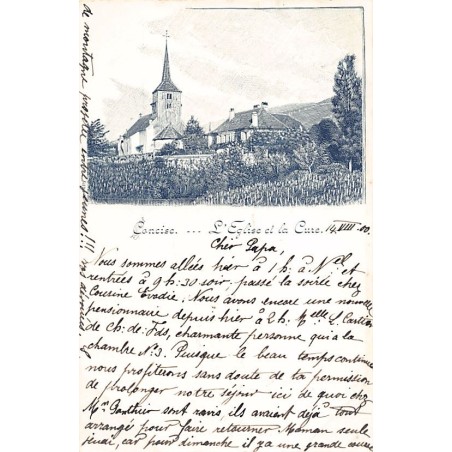 Concise. ... L'Eglise et la Cure. 14 VIII 00.
Cher Papa,
Nous sommes allées hier à 1 h. à N.el et
rentrées à 9 h. 30 soir. passé la soirée chez
Cousine Evodie. Nous avons encore une nouvelle
pensionnaire depuis hier à 2 h. Melle L.
de Ch. de Fds, charmante personne qui a la
chambre No. 3. Puisque le beau temps continue
nous profiterons sans doute de ta permission
de prolonger notre séjour ici de quoi chez
Mme Gauthier sont ravis, ils avaient déjà tout
arrangé pour faire retourner Maman seule
jeudi, car pour dimanche il y a une grande course
de montagne